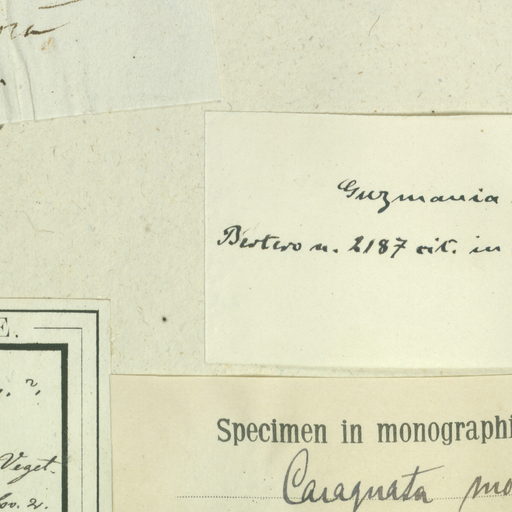 Guzmania
Bertero n. 2187 cit. in
E.
Veget.
Specimen in monographi
Caraguata mo